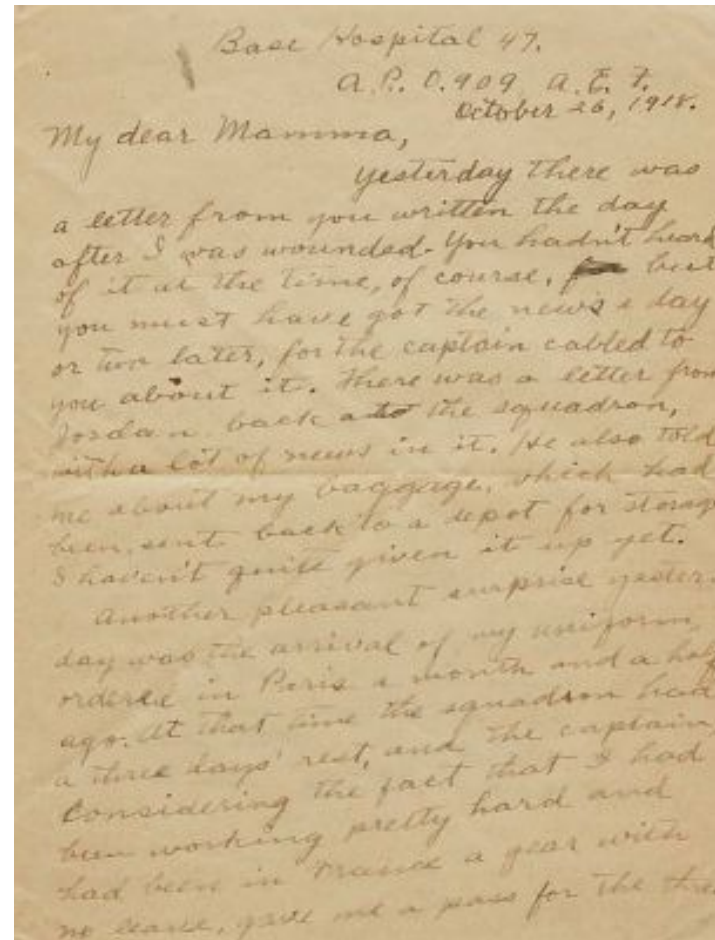 Base Hospital 47.
A.P.O. 909 A.E.F.
October 26, 1918.
My dear Mamma,
Yesterday there was
a letter from you written the day
after I was wounded. You hadn't heard
of it at the time, of course, but
you must have got the news a day
or two later, for the captain cabled to
you about it. There was a letter from
Jordan back at the squadron,
with a lot of news in it. He also told
me about my baggage, which had
been sent back to a depot for storage
I haven't quite given it up yet.
Another pleasant surprise yester-
day was the arrival of my uniform,
ordered in Paris a month and a half
ago. At that time the squadron had
a three days' rest, and the captain,
considering the fact that I had
been working pretty hard and
had been in France a year with
no leave, gave me a pass for the three